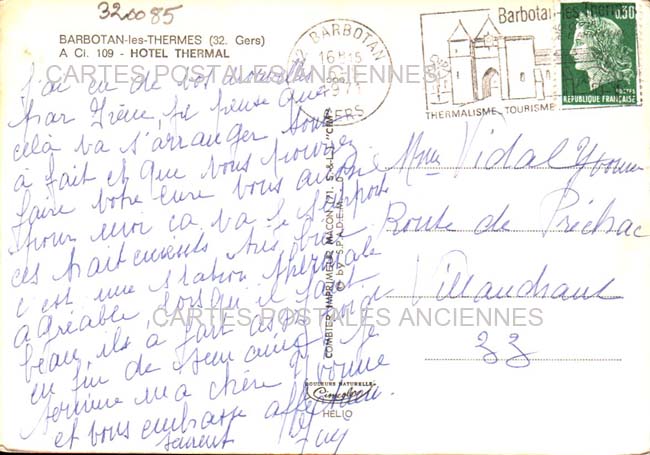 320085
BARBOTAN-les-THERMES (32. Gers)
A Ci. 109 - HOTEL THERMAL
32 BARBOTAN
16H15
1971
GERS
Barbotan-les-Thermes
THERMALISME-TOURISME
0.30
POSTES
REPUBLIQUE FRANÇAISE
CARTES POSTALES ANCIENNES
J'ai eu de vos nouvelles
par Irène, je pense que
celà va s'arranger tout
à fait et que vous pourrez
faire votre cure vous aussi
pour moi ça va je supporte
ces traitements très bien
c'est une station thermale
agréable lorsqu'il fait
beau, ils à fait assez
en fin de semaine je
termine ma chère Yvonne
et vous embrasse
Mme Vidal Yvonne
Route de Préchac
Villandraut
33
CARTES POSTALES ANCIENNES
COMBIER IMPRIMEUR MACON (71. S.-&-L.) "CIM"
© by S.P.A.D.E.M.
COULEURS NATURELLES
Cimcolor
HELIO